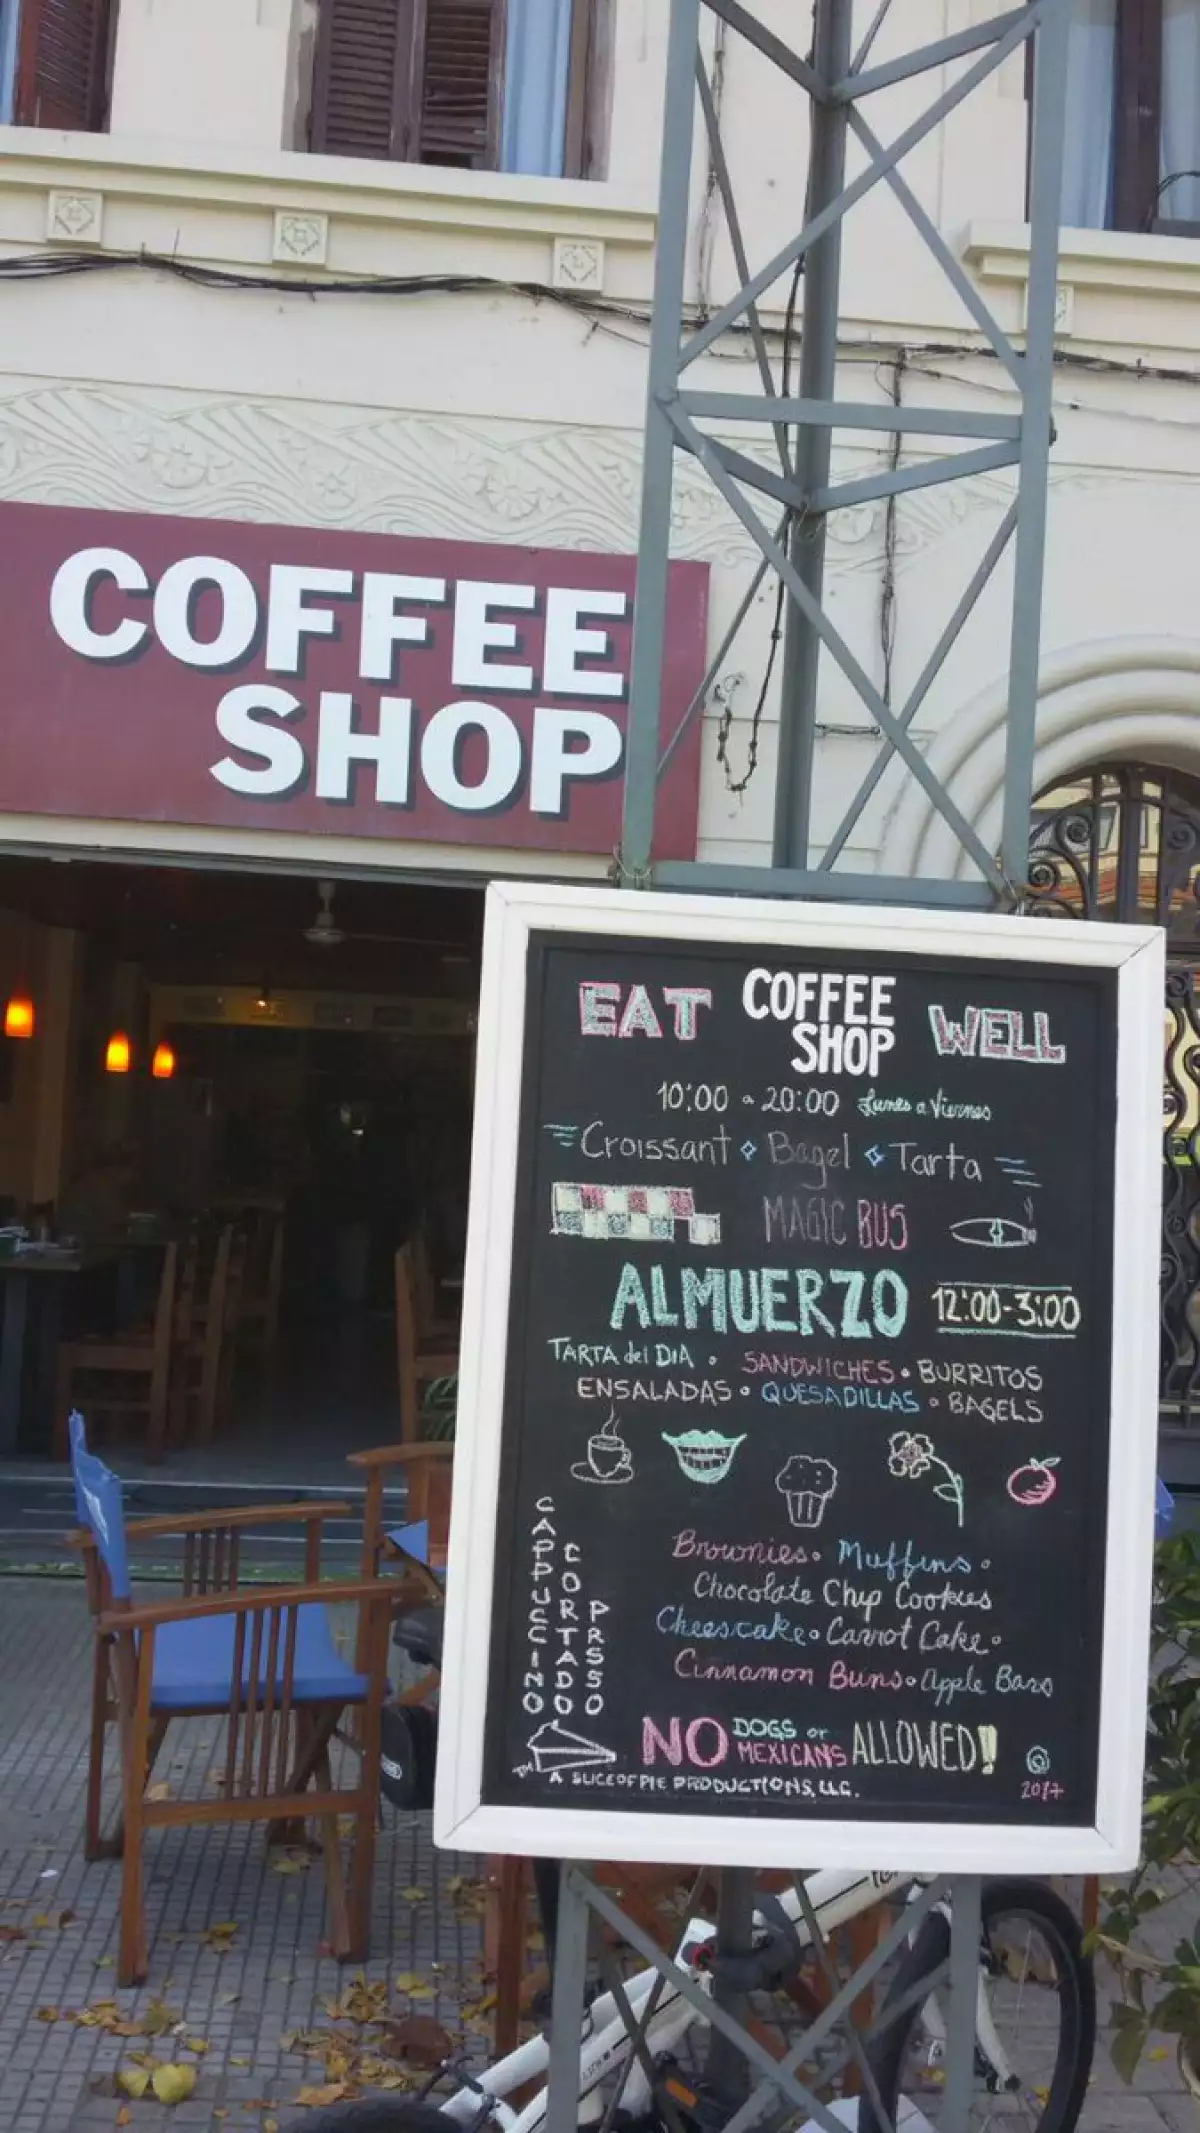 COFFEE
SHOP
EAT COFFEE SHOP WELL
10:00 a 20:00 Lunes a Viernes
Croissant Bagel Tarta
MAGIC BUS
ALMUERZO 12:00-3:00
TARTA del DIA • SANDWICHES • BURRITOS
ENSALADAS • QUESADILLAS • BAGELS
CAPPUCCINO
CORTADO
PRSSO
Brownies • Muffins •
Chocolate Chip Cookies
Cheescake • Carrot Cake •
Cinnamon Buns • Apple Bars
NO DOGS or MEXICANS ALLOWED!
TM A SLICE OF PIE PRODUCTIONS, LLC.
@ 2017